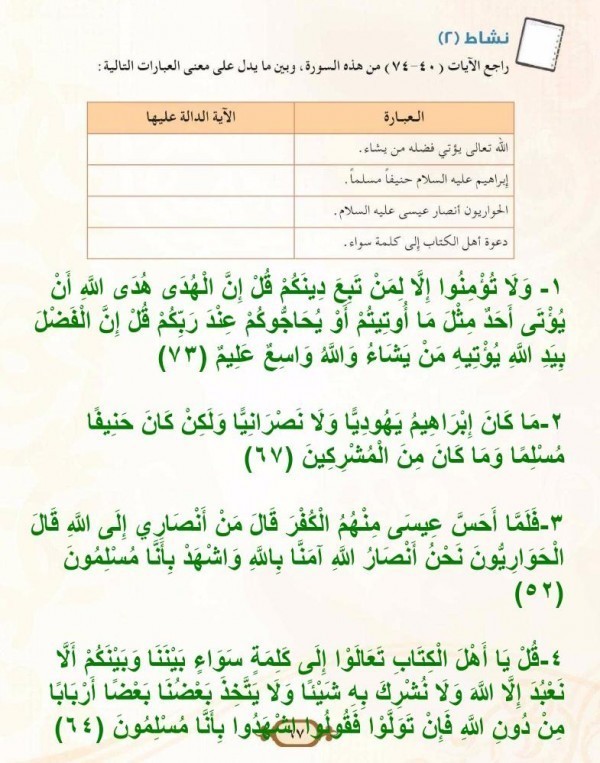 نشاط (٢)
راجع الآيات (٤٠-٧٤) من هذه السورة، وبين ما يدل على معنى العبارات التالية:
العبارة الآية الدالة عليها
الله تعالى يؤتي فضله من يشاء.
إبراهيم عليه السلام حنيفاً مسلماً.
الحواريون أنصار عيسى عليه السلام.
دعوة أهل الكتاب إلى كلمة سواء.
١- وَلَا تُؤْمِنُوا إِلَّا لِمَنْ تَبِعَ دِينَكُمْ قُلْ إِنَّ الْهُدَى هُدَى اللَّهِ أَنْ
يُؤْتَى أَحَدٌ مِثْلَ مَا أُوتِيتُمْ أَوْ يُحَاجُّوكُمْ عِنْدَ رَبِّكُمْ قُلْ إِنَّ الْفَضْلَ
بِيَدِ اللَّهِ يُؤْتِيهِ مَنْ يَشَاءُ وَاللَّهُ وَاسِعٌ عَلِيمٌ (٧٣)
٢-مَا كَانَ إِبْرَاهِيمُ يَهُودِيًّا وَلَا نَصْرَانِيًّا وَلَكِنْ كَانَ حَنِيفًا
مُسْلِمًا وَمَا كَانَ مِنَ الْمُشْرِكِينَ (٦٧)
٣-فَلَمَّا أَحَسَّ عِيسَى مِنْهُمُ الْكُفْرَ قَالَ مَنْ أَنْصَارِي إِلَى اللَّهِ قَالَ
الْحَوَارِيُّونَ نَحْنُ أَنْصَارُ اللَّهِ آمَنَّا بِاللَّهِ وَاشْهَدْ بِأَنَّا مُسْلِمُونَ
(٥٢)
٤-قُلْ يَا أَهْلَ الْكِتَابِ تَعَالَوْا إِلَى كَلِمَةٍ سَوَاءٍ بَيْنَنَا وَبَيْنَكُمْ أَلَّا
نَعْبُدَ إِلَّا اللَّهَ وَلَا نُشْرِكَ بِهِ شَيْئًا وَلَا يَتَّخِذَ بَعْضُنَا بَعْضًا أَرْبَابًا
مِنْ دُونِ اللَّهِ فَإِنْ تَوَلَّوْا فَقُولُوا اشْهَدُوا بِأَنَّا مُسْلِمُونَ (٦٤)
١٧